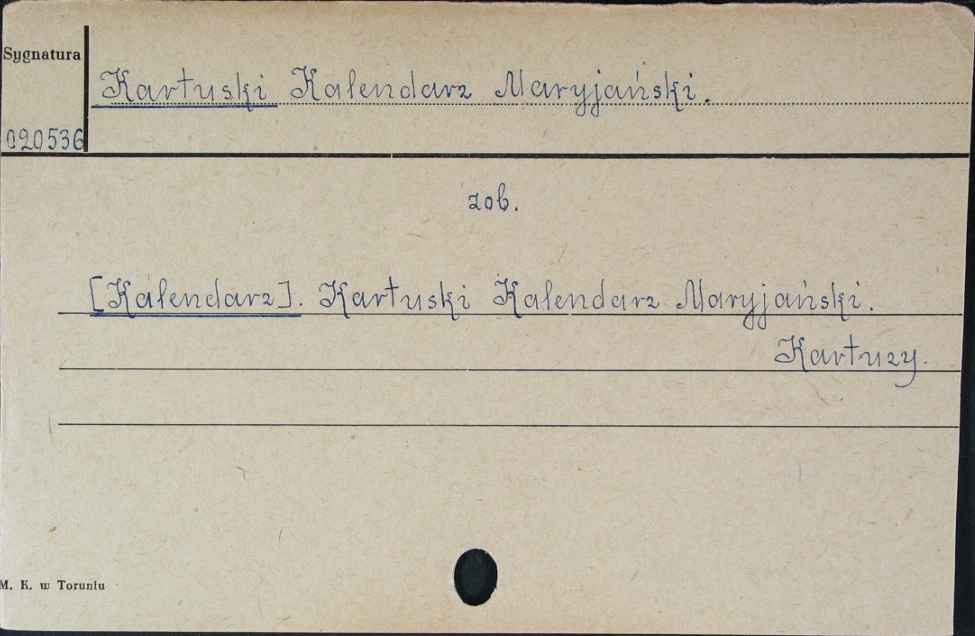 Sygnatura
Kartuski Kalendarz Maryjański.
020536
zob.
[Kalendarz]. Kartuski Kalendarz Maryjański.
Kartuzy.
M. K. w Toruniu